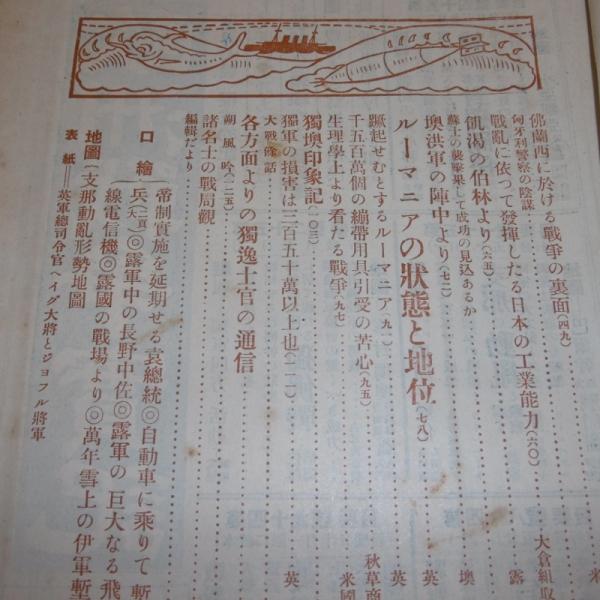 佛蘭西に於ける戰爭の裏面(四九)
匈牙利警察の陰謀
戰亂に依つて發揮したる日本の工業能力(六〇) 大倉組取
飢渇の伯林より(六五) 露
蘇士の襲撃果して成功の見込あるか
墺洪軍の陣中より(七二) 墺
ルーマニアの狀態と地位(七八) 英
蹶起せむとするルーマニア(九一) 英
千五百萬個の繃帶用具引受の苦心(九五) 秋草商
生理學上より看たる戰爭(九七) 米國
獨墺印象記(一〇三)
獨軍の損害は三百五十萬以上也(一一一) 英
大戰餘話
各方面よりの獨逸士官の通信
朔風吟(一二五)
諸名士の戰局觀
編輯だより
口繪
帝制實施を延期せる袁總統◎自動車に乘りて暫
兵(二頁大)◎露軍中の長野中佐◎露軍の巨大なる飛
線電信機◎露國の戰場より◎萬年雪上の伊軍塹
地圖(支那動亂形勢地圖)
表紙——英軍總司令官ヘイグ大將とジョフル將軍